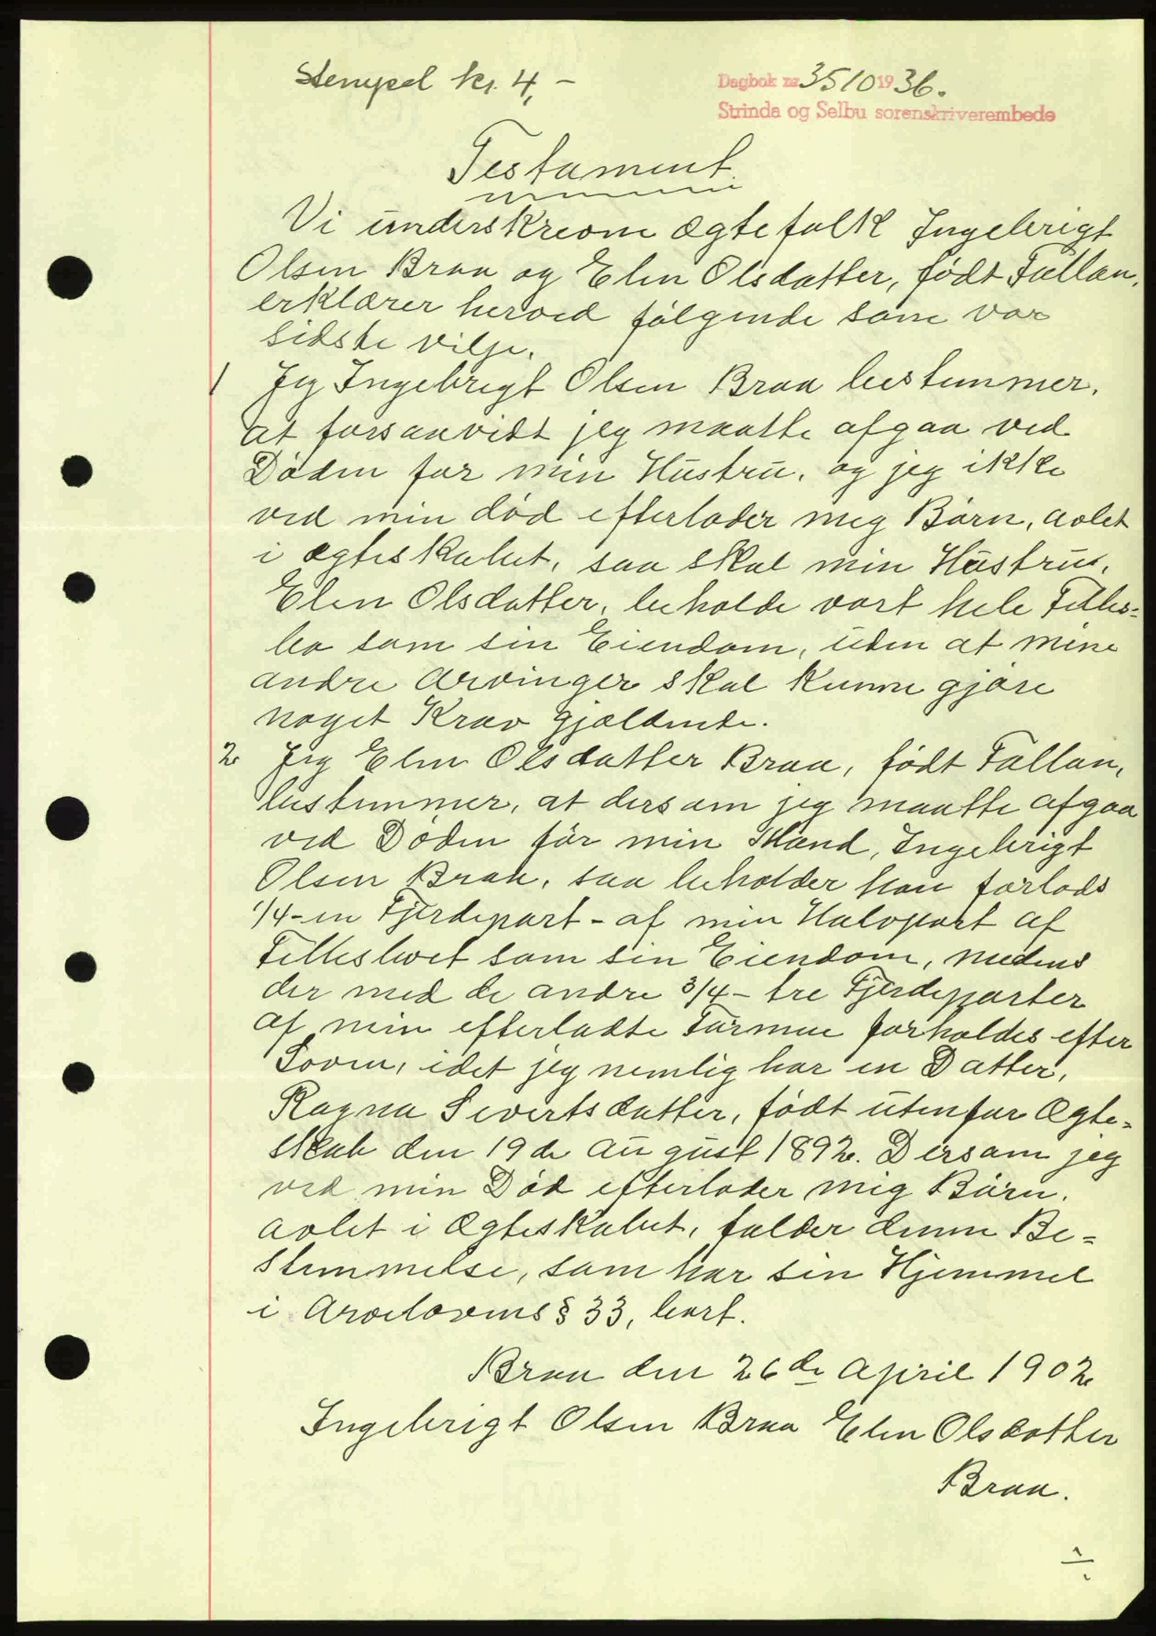 Stempel kr. 4,-
Dagbok nr 3510 1936.
Strinda og Selbu sorenskriverembede
Testament.
Vi underskrevne Ægtefolk Ingebrigt
Olsen Braa og Elen Olsdatter, født Tallau,
erklærer herved følgende som vor
sidste vilje.
1 Jeg Ingebrigt Olsen Braa bestemmer,
at forsaavidt jeg maatte afgaa ved
Døden før min Hustru, og jeg ikke
ved min død efterlader mig Børn, avlet
i Ægteskabet, saa skal min Hustru,
Elen Olsdatter, beholde vort hele Fælles=
bo som sin Eiendom, uden at mine
andre Arvinger skal kunne gjøre
noget Krav gjældende.
2 Jeg Elen Olsdatter Braa, født Tallau,
bestemmer, at dersom jeg maatte afgaa
ved Døden før min Mand, Ingebrigt
Olsen Braa, saa beholder han forlods
1/4-en Fjerdepart- af min Halvpart af
Fællesboet som sin Eiendom, medens
der med de andre 3/4- tre Fjerdeparter
af min efterladte Formue forholdes efter
Loven, idet jeg nemlig har en Datter,
Ragna Sivertsdatter, født utenfor Ægte=
skab den 19de August 1892. Dersom jeg
ved min Død efterlader mig Børn,
avlet i Ægteskabet, falder denne Be=
stemmelse, som har sin Hjemmel
i Arvelovens § 33, bort.
Braa den 26de April 1902
Ingebrigt Olsen Braa Elen Olsdatter
Braa.